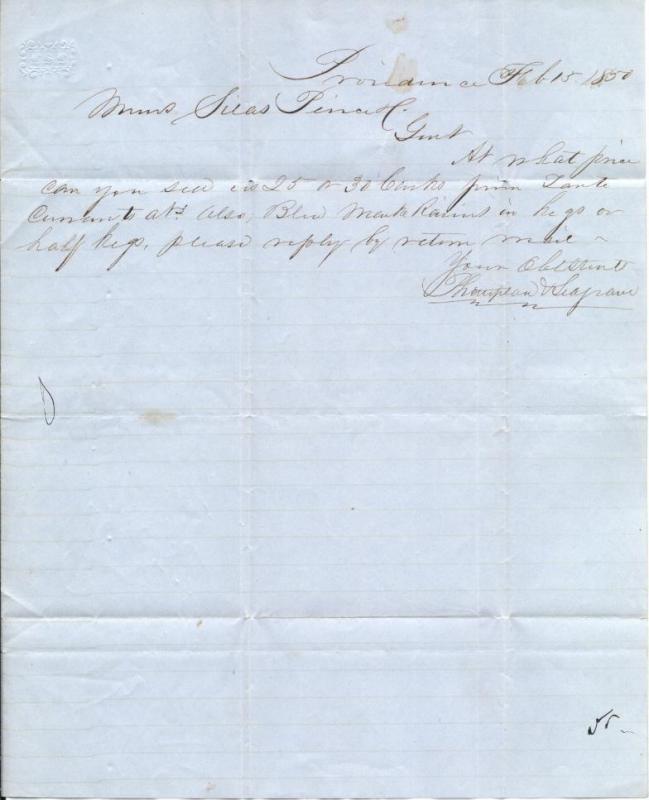 Providence Feb 15 1850
Messrs Silas Peirce & Co.
Gent
At what price
can you sell us 25 or 30 Casks prime Zante
Currants at? Also, Blue Mark Raisins in kegs or
half kegs. please reply by return mail ~
Your Obt Servts
Thompson & Seagrave